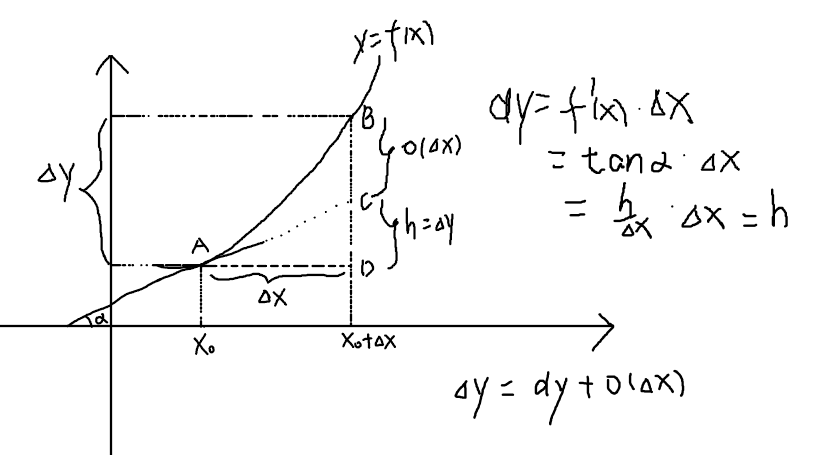 y=f(x)
B
Δy
o(Δx)
C
h=Δy
A
D
Δx
α
x₀
x₀+Δx
dy=f'(x)·Δx
=tanα·Δx
=h/Δx·Δx=h
Δy=dy+o(Δx)